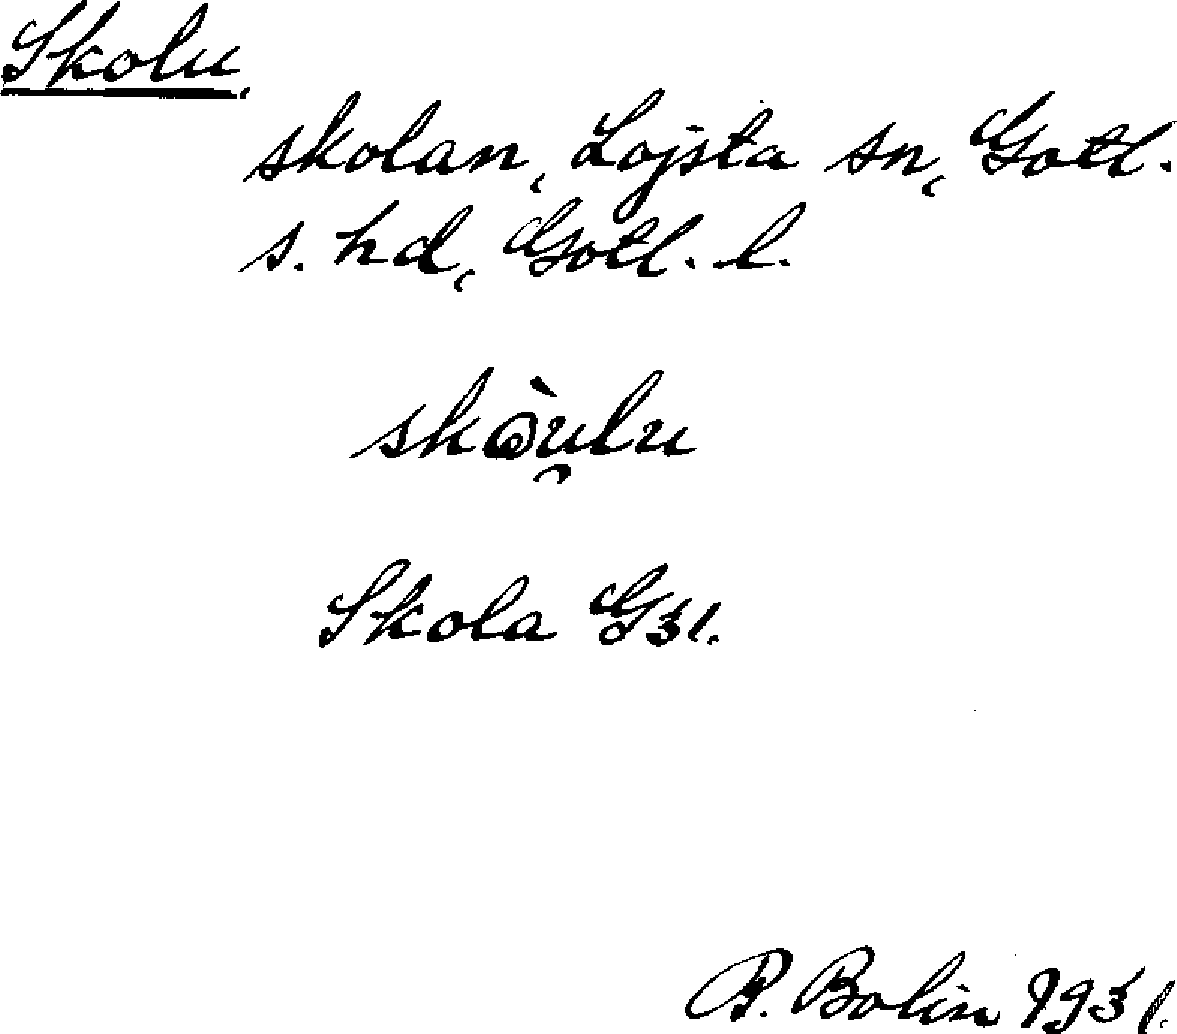 Skolu,
skolan, Lojsta sn, Gotl.
s. hd, Gotl. l.
skòu̯lu
Skola G31.
P. Bolin 1931.